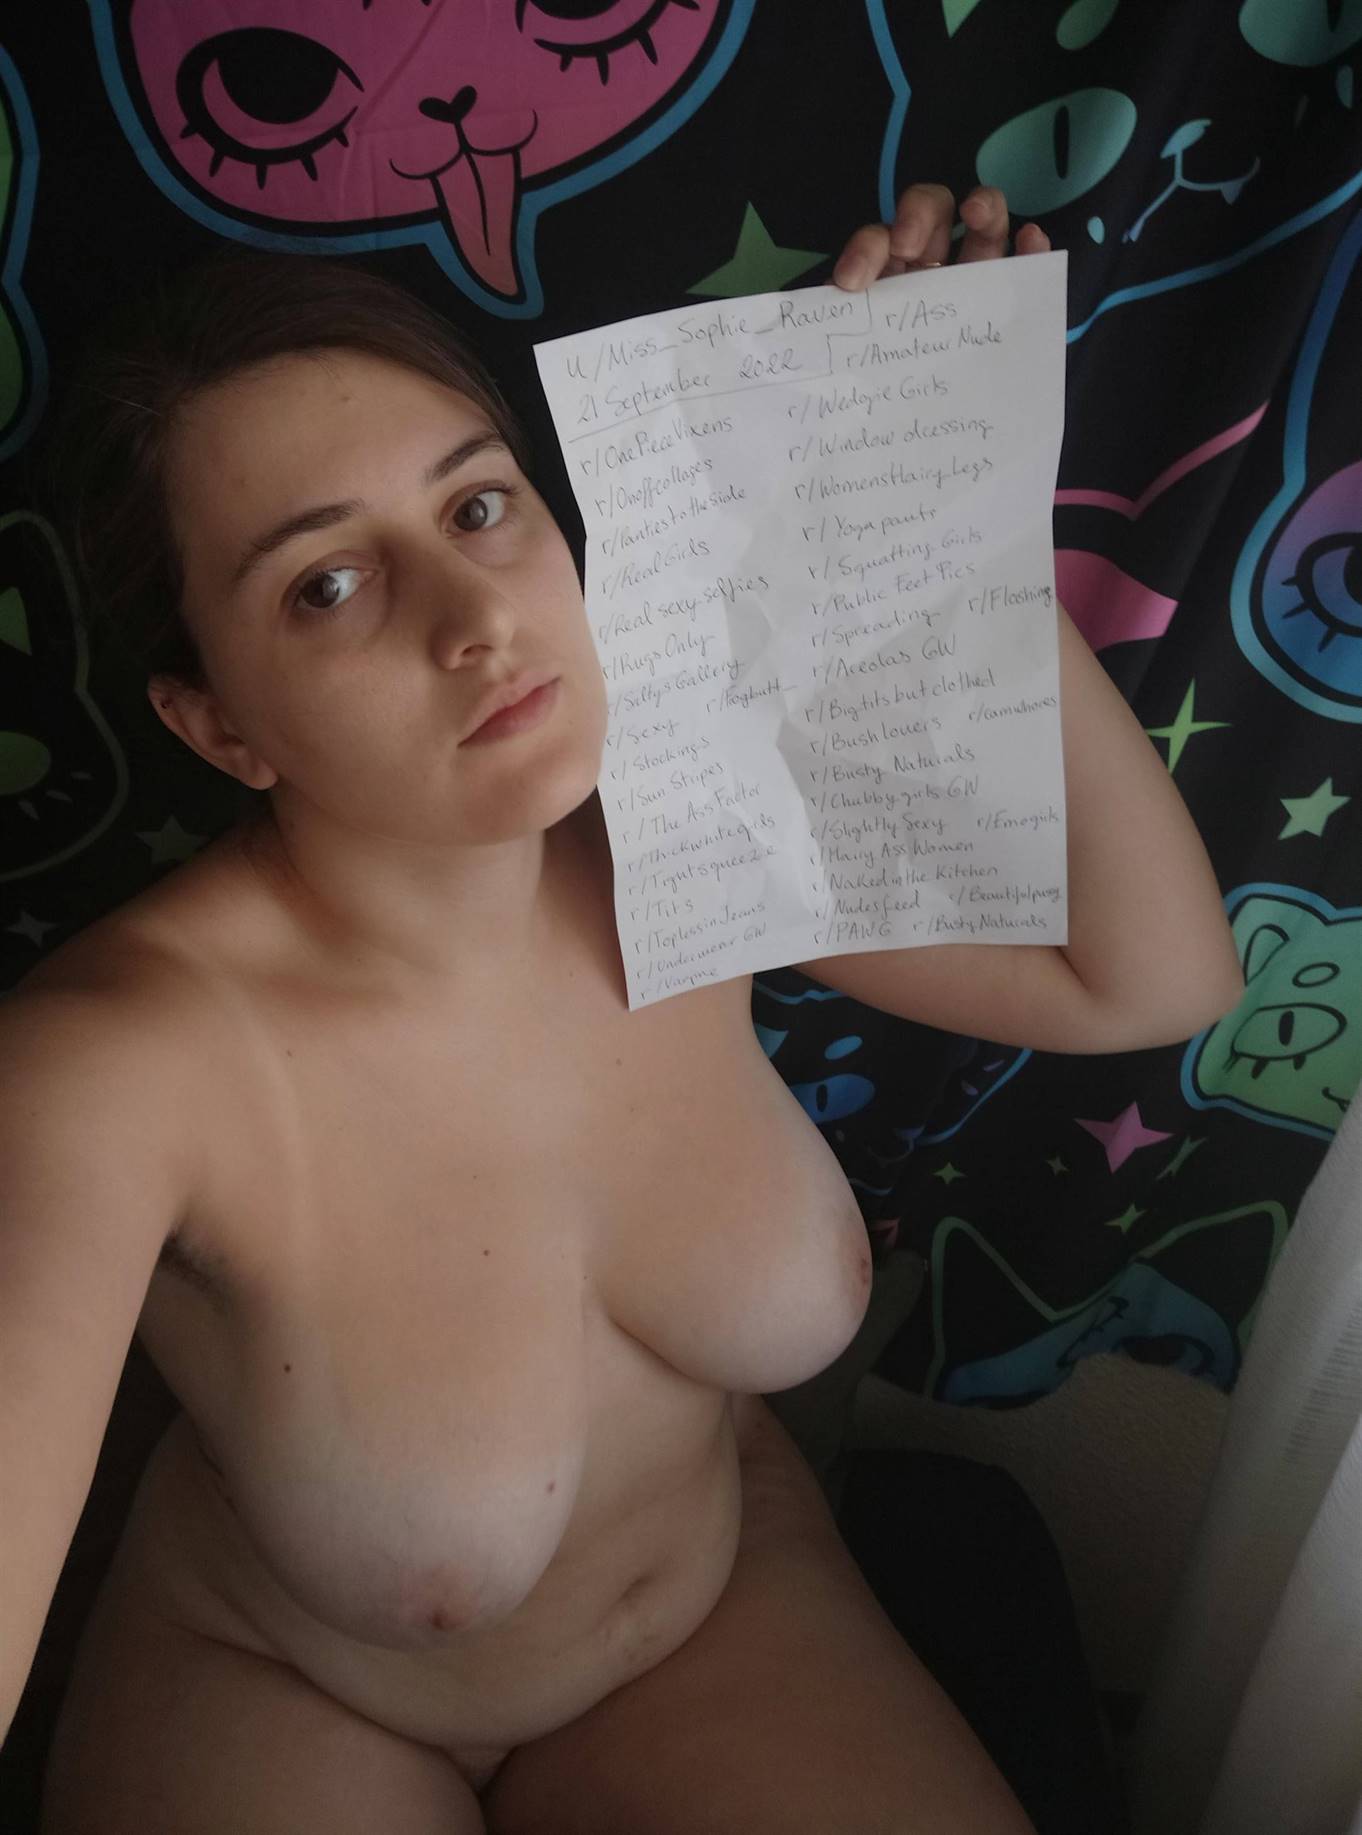 u/Miss_Sophie_Raven
21 September 2022
r/Ass
r/Amateur Nude
r/OnePieceVixens
r/Onoffcollages
r/Pantiestotheside
r/RealGirls
r/Real sexy selfies
r/RugsOnly
r/Siltys Gallery
r/Sexy r/Frogbutt
r/Stockings
r/Sun Stripes
r/The Ass Factor
r/Thickwhitegirls
r/Tightsqueeze
r/Tits
r/ToplessinJeans
r/Underwear GW
r/Wedgie Girls
r/Window dressing
r/WomensHairyLegs
r/Yoga pants
r/Squatting Girls
r/Public Feet Pics
r/Spreading r/Flashing
r/Areolas GW
r/Bigtits but clothed
r/Bush lovers r/camwhores
r/Busty Naturals
r/Chubby girls GW
r/Slightly Sexy r/Emogirls
r/Hairy Ass Women
r/Naked in the Kitchen
r/Nudes feed r/Beautifulpussy
r/PAWG r/Busty Naturals